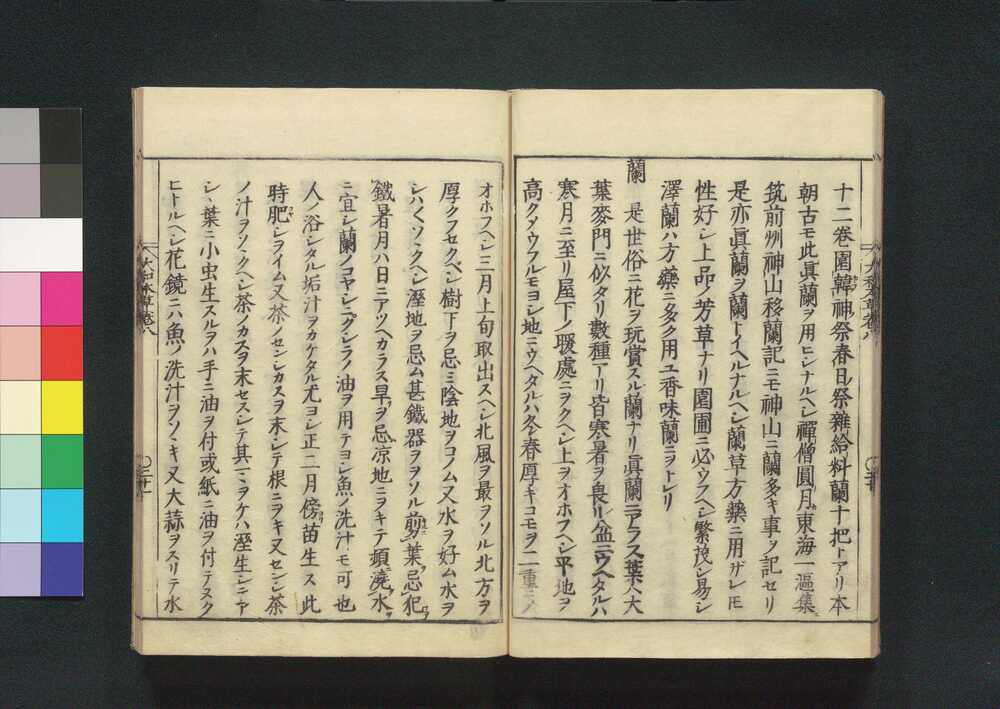 十二卷ニ園韓神祭春日祭雜給料蘭十把トアリ本
朝古モ此眞蘭ヲ用ヒシナルヘシ禪僧圓月東海一漚集
筑前州神山移蘭記ニモ神山ニ蘭多キ事ヲ記セリ
是亦眞蘭ヲ蘭トイヘルナルヘシ蘭草方藥ニ用ザレ𪜈
性好シ上品ノ芳草ナリ園圃ニ必ウフヘシ繁茂シ易シ
澤蘭ハ方藥ニ多ク用ユ香味蘭ニヲトレリ
蘭 是世俗ニ花ヲ玩賞スル蘭ナリ眞蘭ニアラス葉ハ大
葉麥門ニ似タリ數種アリ皆寒暑ヲ畏ル盆ニウヘタルハ
寒月ニ至リ屋下ノ暖處ニヲクヘシ上ヲオホフヘシ平地ヨ
高クメウフルモヨシ地ニウヘタルハ冬春厚キコモヲ二重ニメ
オホフヘシ三月上旬取出スヘシ北風ヲ最ヲソル北方ヲ
厚クフセクベシ樹下ヲ忌ミ陰地ヲコノム又水ヲ好ム水ヲ
シハ〱ソソクヘシ溼地ヲ忌ム甚鐵器ヲヲソル剪葉忌犯
鐵暑月ハ日ニアツヘカラス旱ヲ忌凉地ニヲキテ頻澆水
ニ宜シ蘭ノコヤシニクシラノ油ヲ用テヨシ魚ノ洗汁モ可也
人ノ浴シタル垢汁ヲカケタル尤ヨシ正二月傍苗生ス此
時肥シヲイム又茶ノセンシカスヲ末シテ根ニヲキ又センシ茶
ノ汁ヲソソクヘシ茶ノカスヲ末セスシテ其ママヲケハ溼生シニヤ
シ、葉ニ小虫生スルヲハ手ニ油ヲ付或紙ニ油ヲ付テスク
ヒトルヘシ花鏡ニハ魚ノ洗汁ヲソソキ又大蒜ヲスリテ水